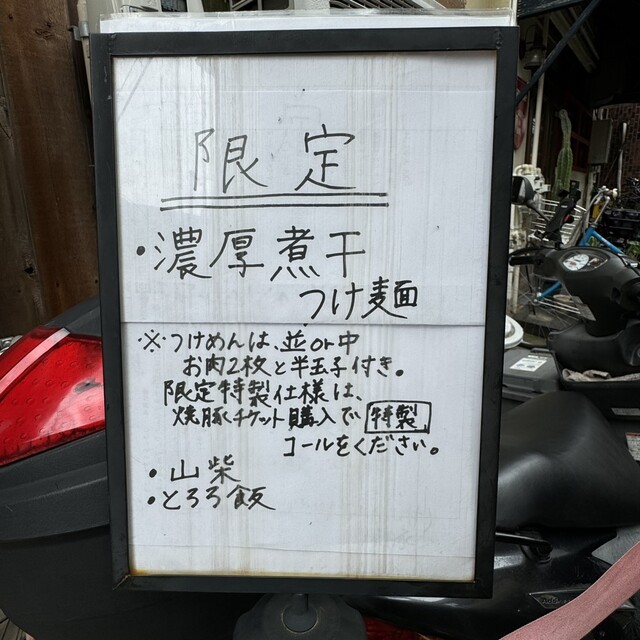 限定
・濃厚煮干
つけ麺
※つけめんは、並or中
お肉2枚と半玉子付き。
限定特製仕様は、
焼豚チケット購入で 特製
コールをください。
・山柴
・とろろ飯